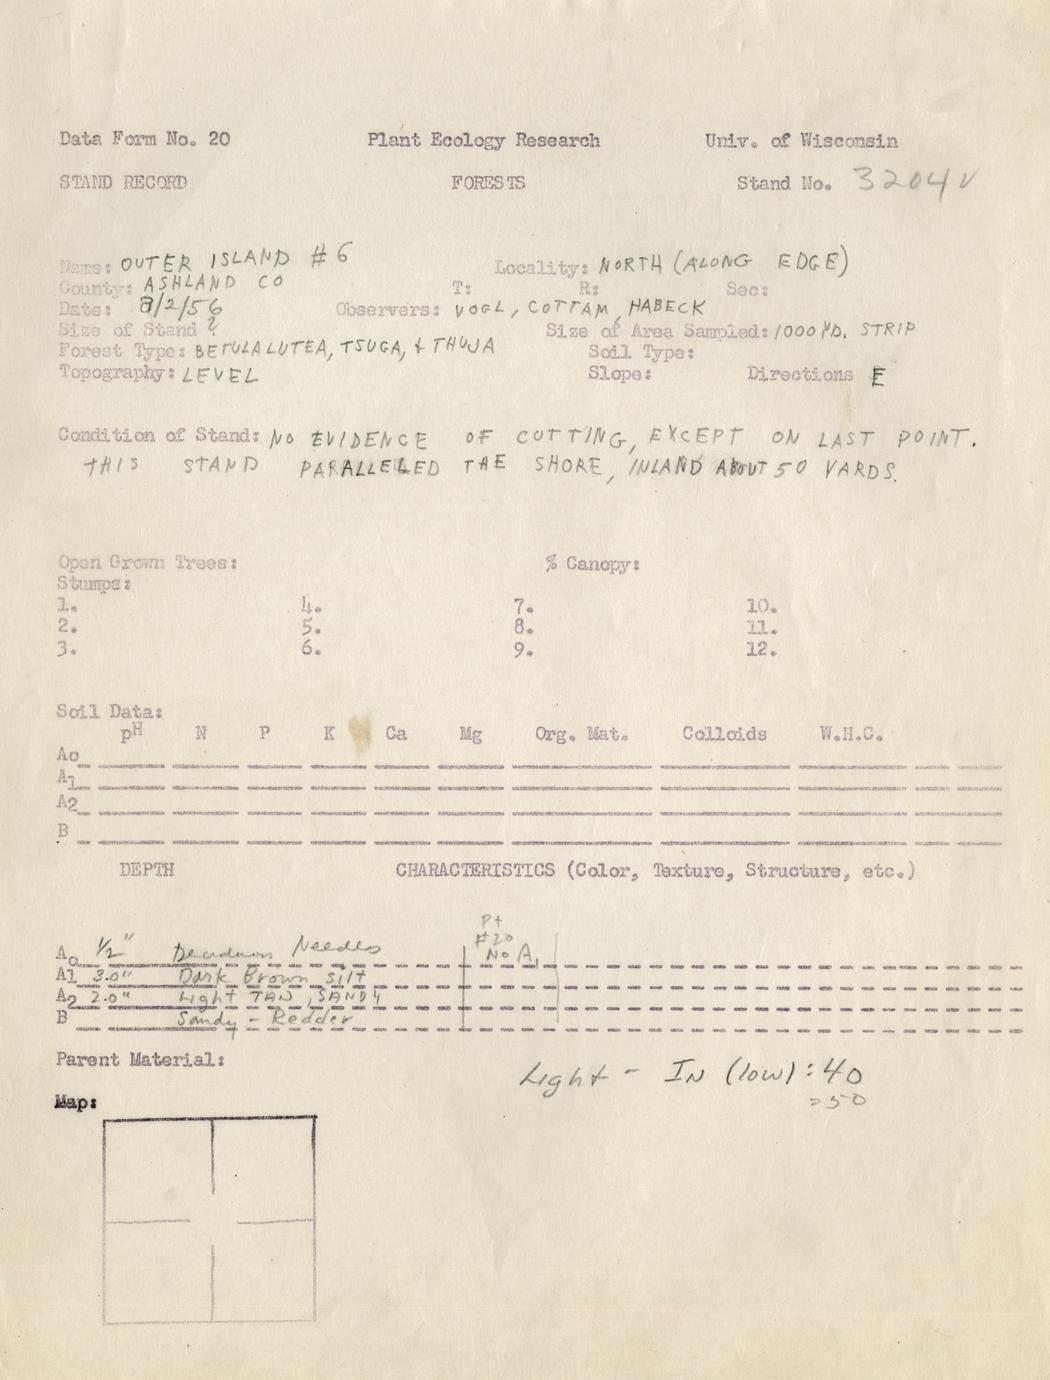 Data Form No. 20 Plant Ecology Research Univ. of Wisconsin
STAND RECORD FORESTS Stand No. 3204 ✓
Name: OUTER ISLAND #6 Locality: NORTH (ALONG EDGE)
County: ASHLAND CO T: R: Sec:
Date: 8/2/56 Observers: VOGL, COTTAM, HABECK
Size of Stand ? Size of Area Sampled: 1000 YD. STRIP
Forest Type: BETULA LUTEA, TSUGA, + THUJA Soil Type:
Topography: LEVEL Slope: Directions E
Condition of Stand: NO EVIDENCE OF CUTTING, EXCEPT ON LAST POINT.
THIS STAND PARALLELED THE SHORE, INLAND ABOUT 50 YARDS.
Open Grown Trees: % Canopy:
Stumps:
1. 4. 7. 10.
2. 5. 8. 11.
3. 6. 9. 12.
Soil Data:
pH N P K Ca Mg Org. Mat. Colloids W.H.C.
Ao
A1
A2
B
DEPTH CHARACTERISTICS (Color, Texture, Structure, etc.)
Pt
#20
Ao 1/2" Needles No A1
A1 3.0" Dark Brown silt
A2 2.0" Light TAN, SANDY
B Sandy - Redder
Parent Material:
Light - IN (low) : 40
= 50
Map: